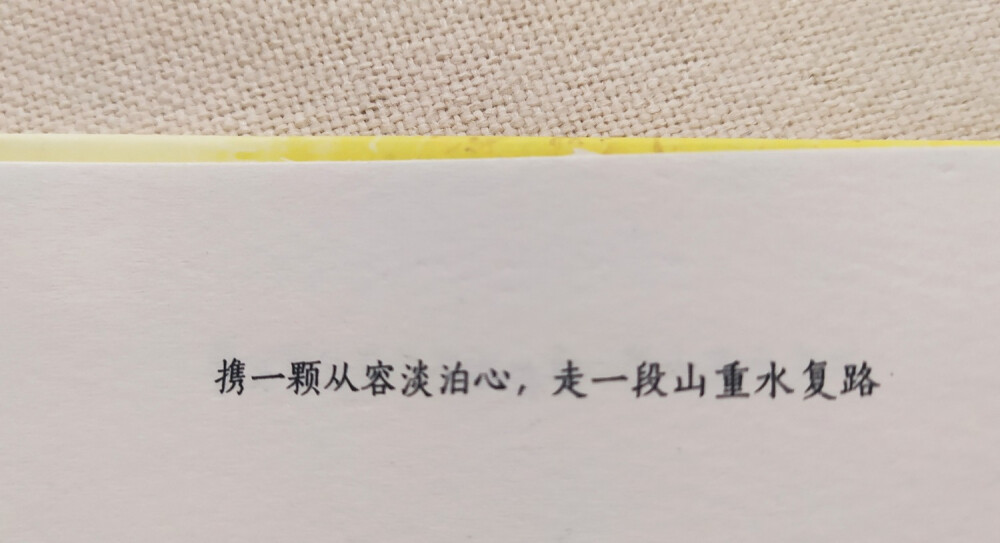 携一颗从容淡泊心，走一段山重水复路